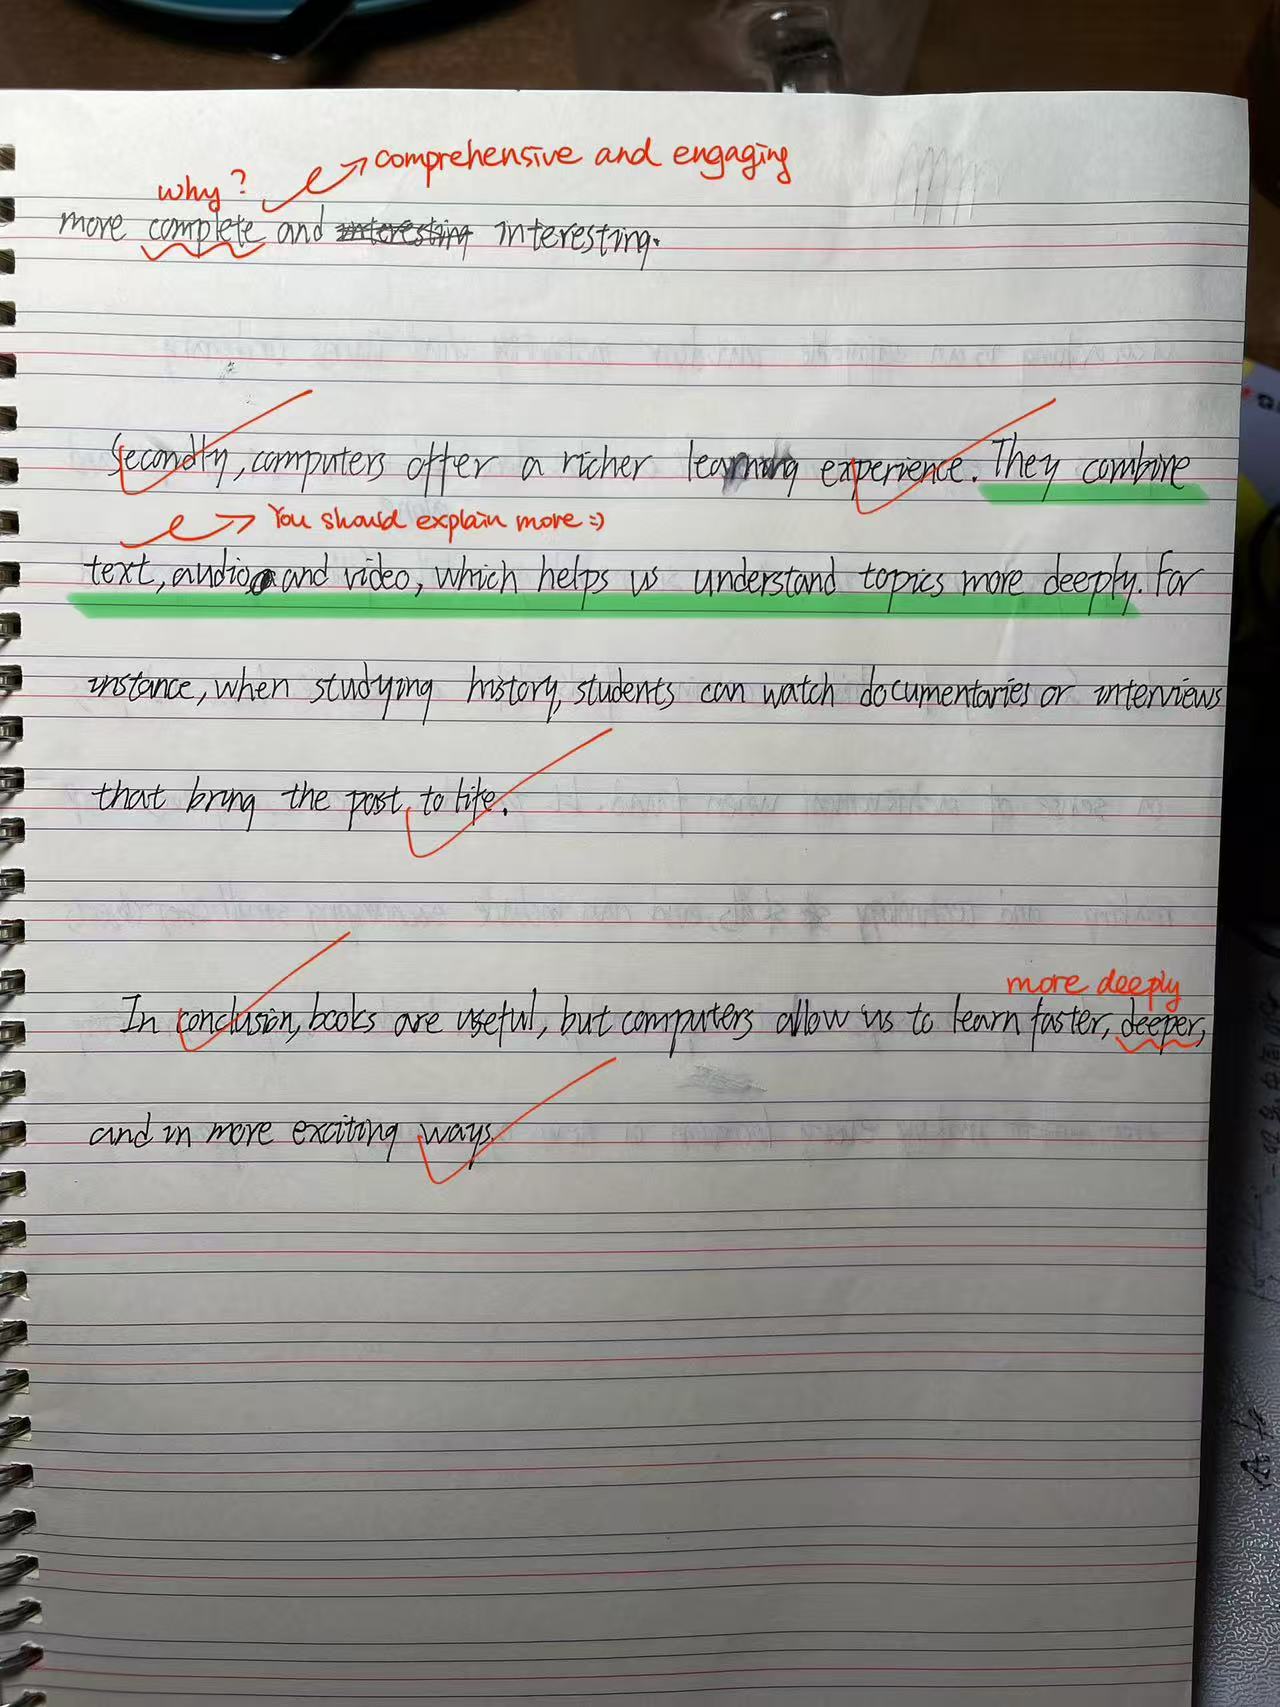 comprehensive and engaging
why?
more complete and interesting interesting.
Secondly, computers offer a richer learning experience. They combine
You should explain more :)
text, audio and video, which helps us understand topics more deeply. For
instance, when studying history, students can watch documentaries or interviews
that bring the past to life.
more deeply
In conclusion, books are useful, but computers allow us to learn faster, deeper,
and in more exciting ways.